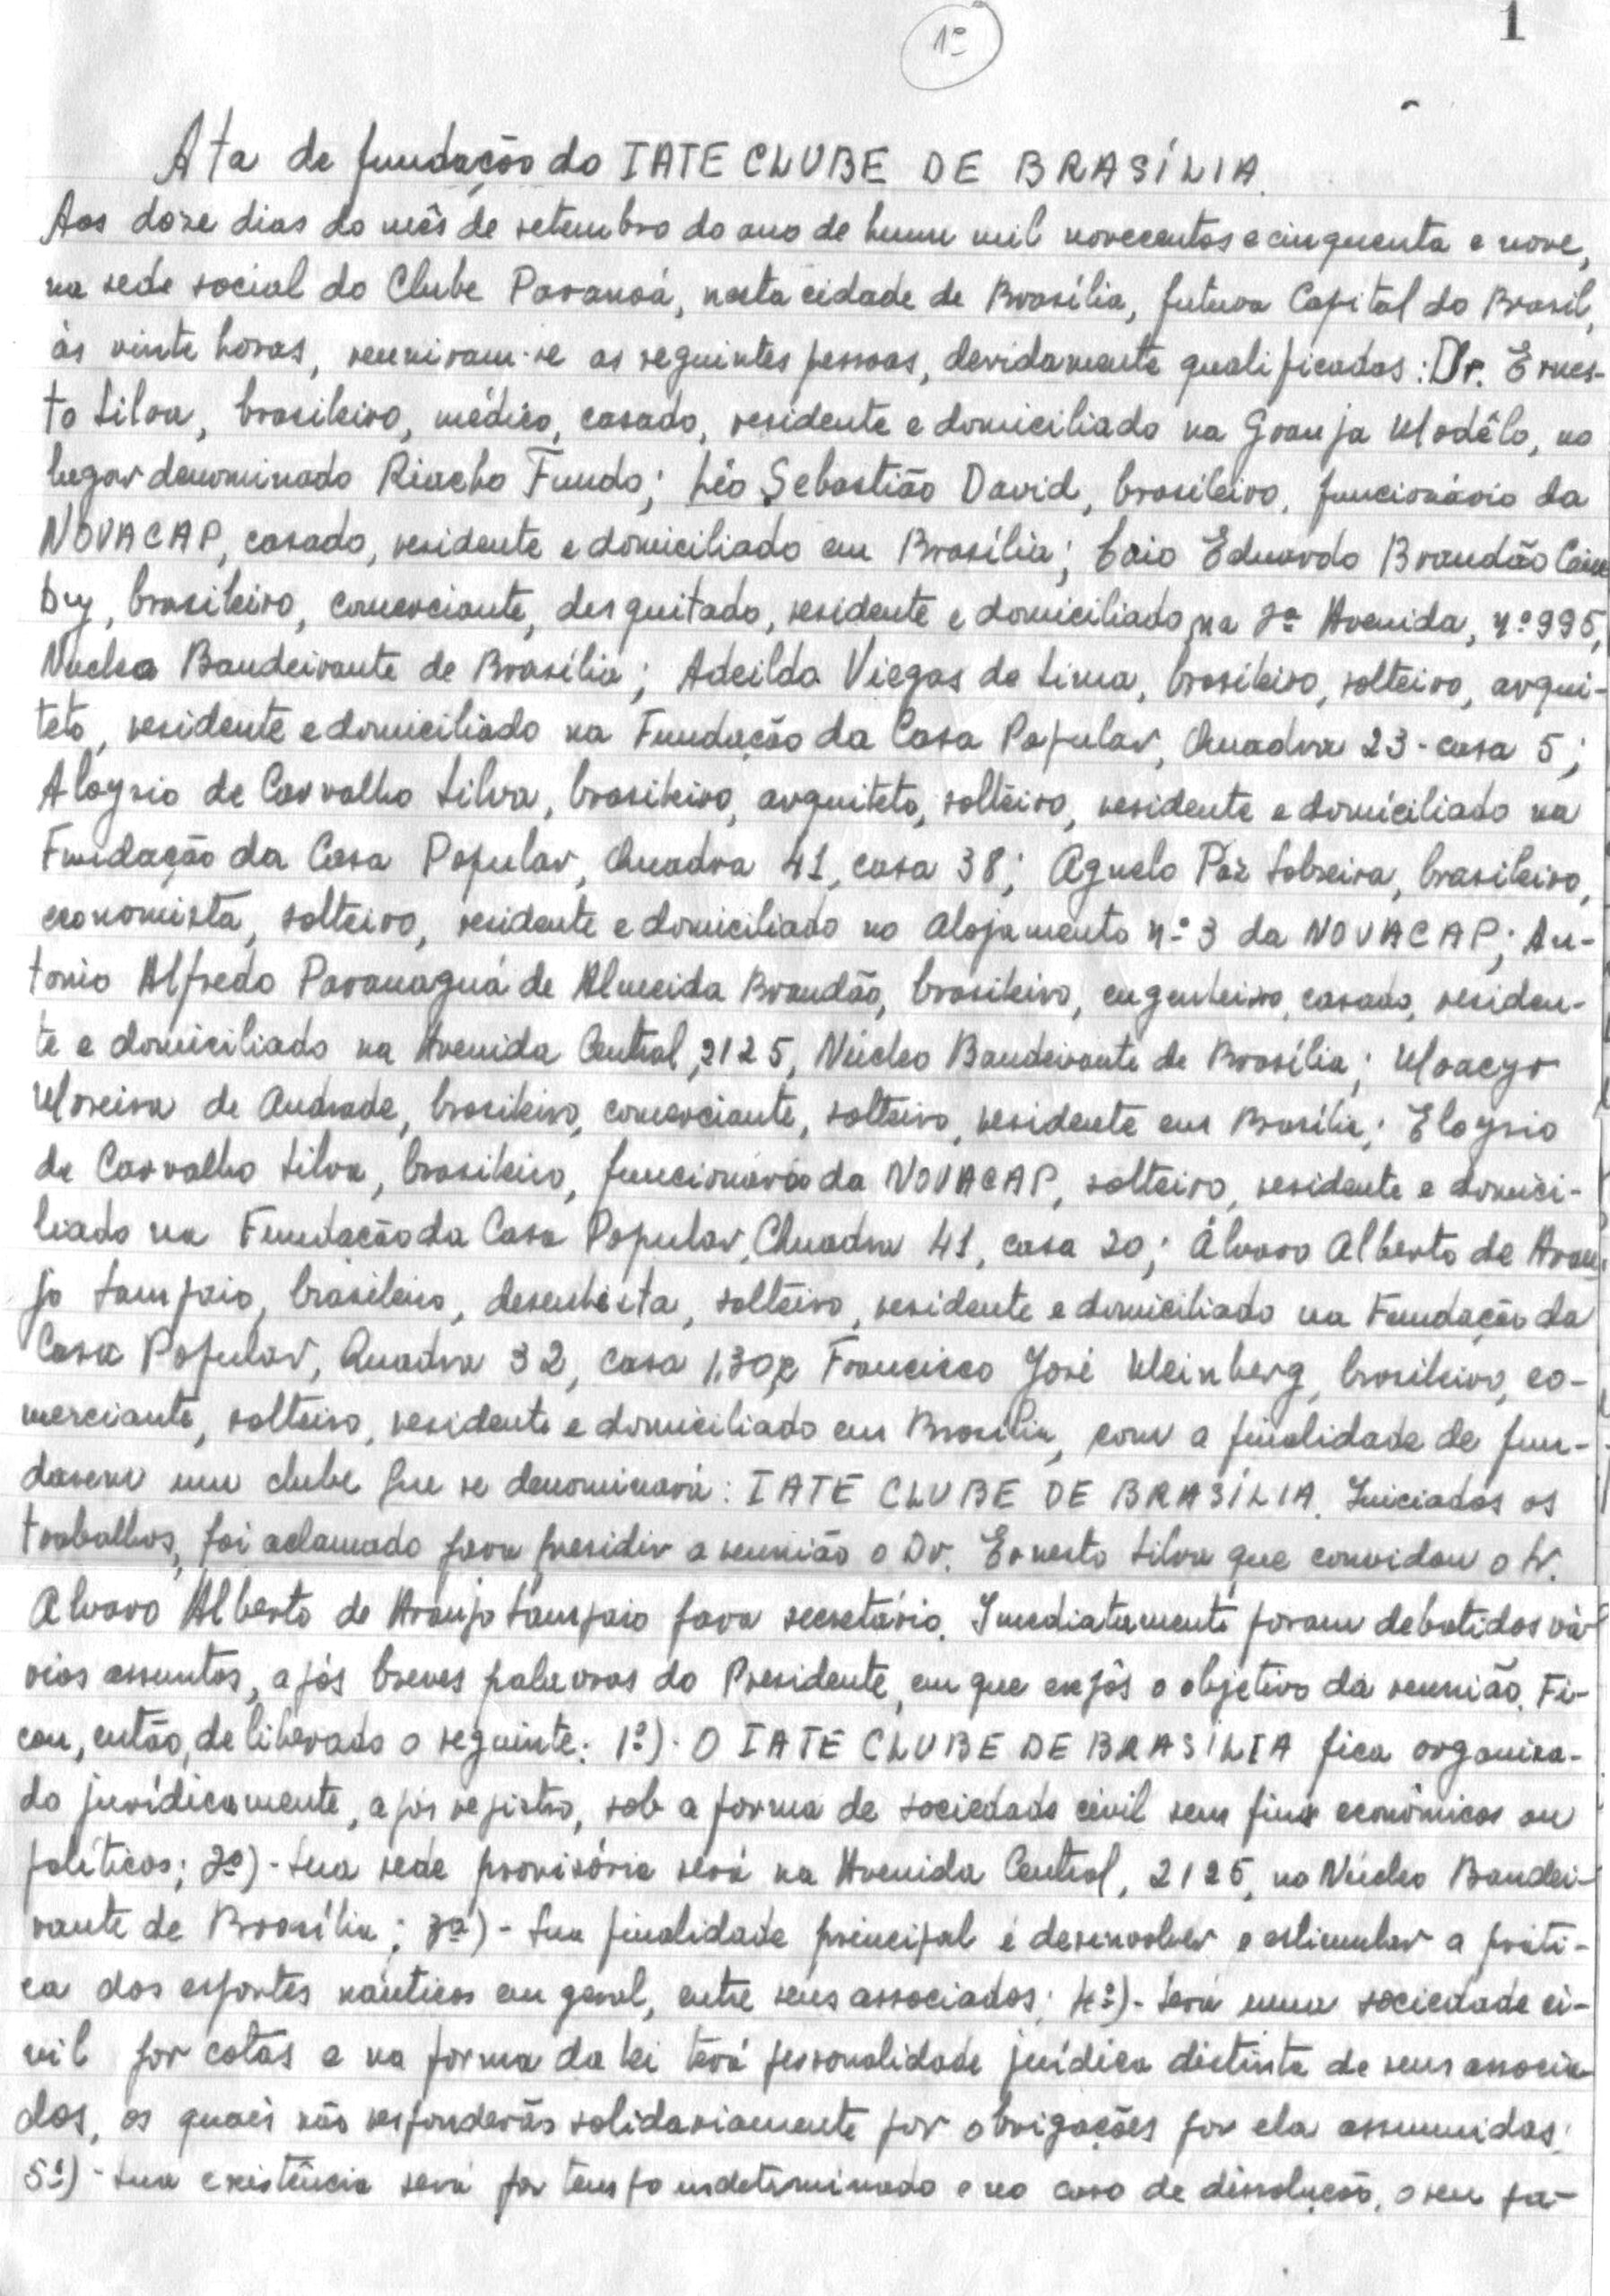 1º
1
Ata de fundação do IATE CLUBE DE BRASÍLIA.
Aos doze dias do mês de setembro do ano de hum mil novecentos e cinquenta e nove,
na sede social do Clube Paranoá, nesta cidade de Brasília, futura Capital do Brasil,
às vinte horas, reuniram-se as seguintes pessoas, devidamente qualificadas: Dr. Ernes-
to Silva, brasileiro, médico, casado, residente e domiciliado na Granja Modêlo, no
lugar denominado Riacho Fundo; Léo Sebastião David, brasileiro, funcionário da
NOVACAP, casado, residente e domiciliado em Brasília; Caio Eduardo Brandão
brasileiro, comerciante, desquitado, residente e domiciliado na Avenida, nº 995,
Nucleo Bandeirante de Brasília; Adeildo Viegas de Lima, brasileiro, solteiro, arqui-
teto, residente e domiciliado na Fundação da Casa Popular, Quadra 23 - casa 5;
Aloysio de Carvalho Silva, brasileiro, arquiteto, solteiro, residente e domiciliado na
Fundação da Casa Popular, Quadra 41, casa 38; Agnelo Paz Sobreira, brasileiro,
economista, solteiro, residente e domiciliado no Alojamento nº 3 da NOVACAP; An-
tonio Alfredo Paranaguá de Almeida Brandão, brasileiro, engenheiro, casado, residen-
te e domiciliado na Avenida Central, 2125, Núcleo Bandeirante de Brasília; Moacyr
Moreira de Andrade, brasileiro, comerciante, solteiro, residente em Brasília; Eloysio
de Carvalho Silva, brasileiro, funcionário da NOVACAP, solteiro, residente e domici-
liado na Fundação da Casa Popular, Quadra 41, casa 20; Álvaro Alberto de Arau-
jo Sampaio, brasileiro, desenhista, solteiro, residente e domiciliado na Fundação da
Casa Popular, Quadra 32, casa 1.30, e Francisco José Kleinberg, brasileiro, co-
merciante, solteiro, residente e domiciliado em Brasília, com a finalidade de fun-
darem um clube que se denominará: IATE CLUBE DE BRASÍLIA. Iniciados os
trabalhos, foi aclamado para presidir a reunião o Dr. Ernesto Silva que convidou o Sr.
Alvaro Alberto de Araujo Sampaio para secretário. Imediatamente foram debatidos vá-
rios assuntos, após breves palavras do Presidente, em que expôs o objetivo da reunião. Fi-
cou, então, deliberado o seguinte: 1º) - O IATE CLUBE DE BRASÍLIA fica organiza-
do jurídicamente, após registro, sob a forma de sociedade civil sem fins econômicos ou
políticos; 2º) - Sua sede provisória será na Avenida Central, 2125, no Núcleo Bandei-
rante de Brasília; 3ª) - Sua finalidade principal é desenvolver e estimular a práti-
ca dos esportes náuticos em geral, entre seus associados; 4º) - Será uma sociedade ci-
vil por cotas e na forma da lei terá personalidade jurídica distinta de seus associa-
dos, os quais não responderão solidariamente por obrigações por ela assumidas;
5º) - Sua existência será por tempo indeterminado e no caso de dissolução, o seu pa-